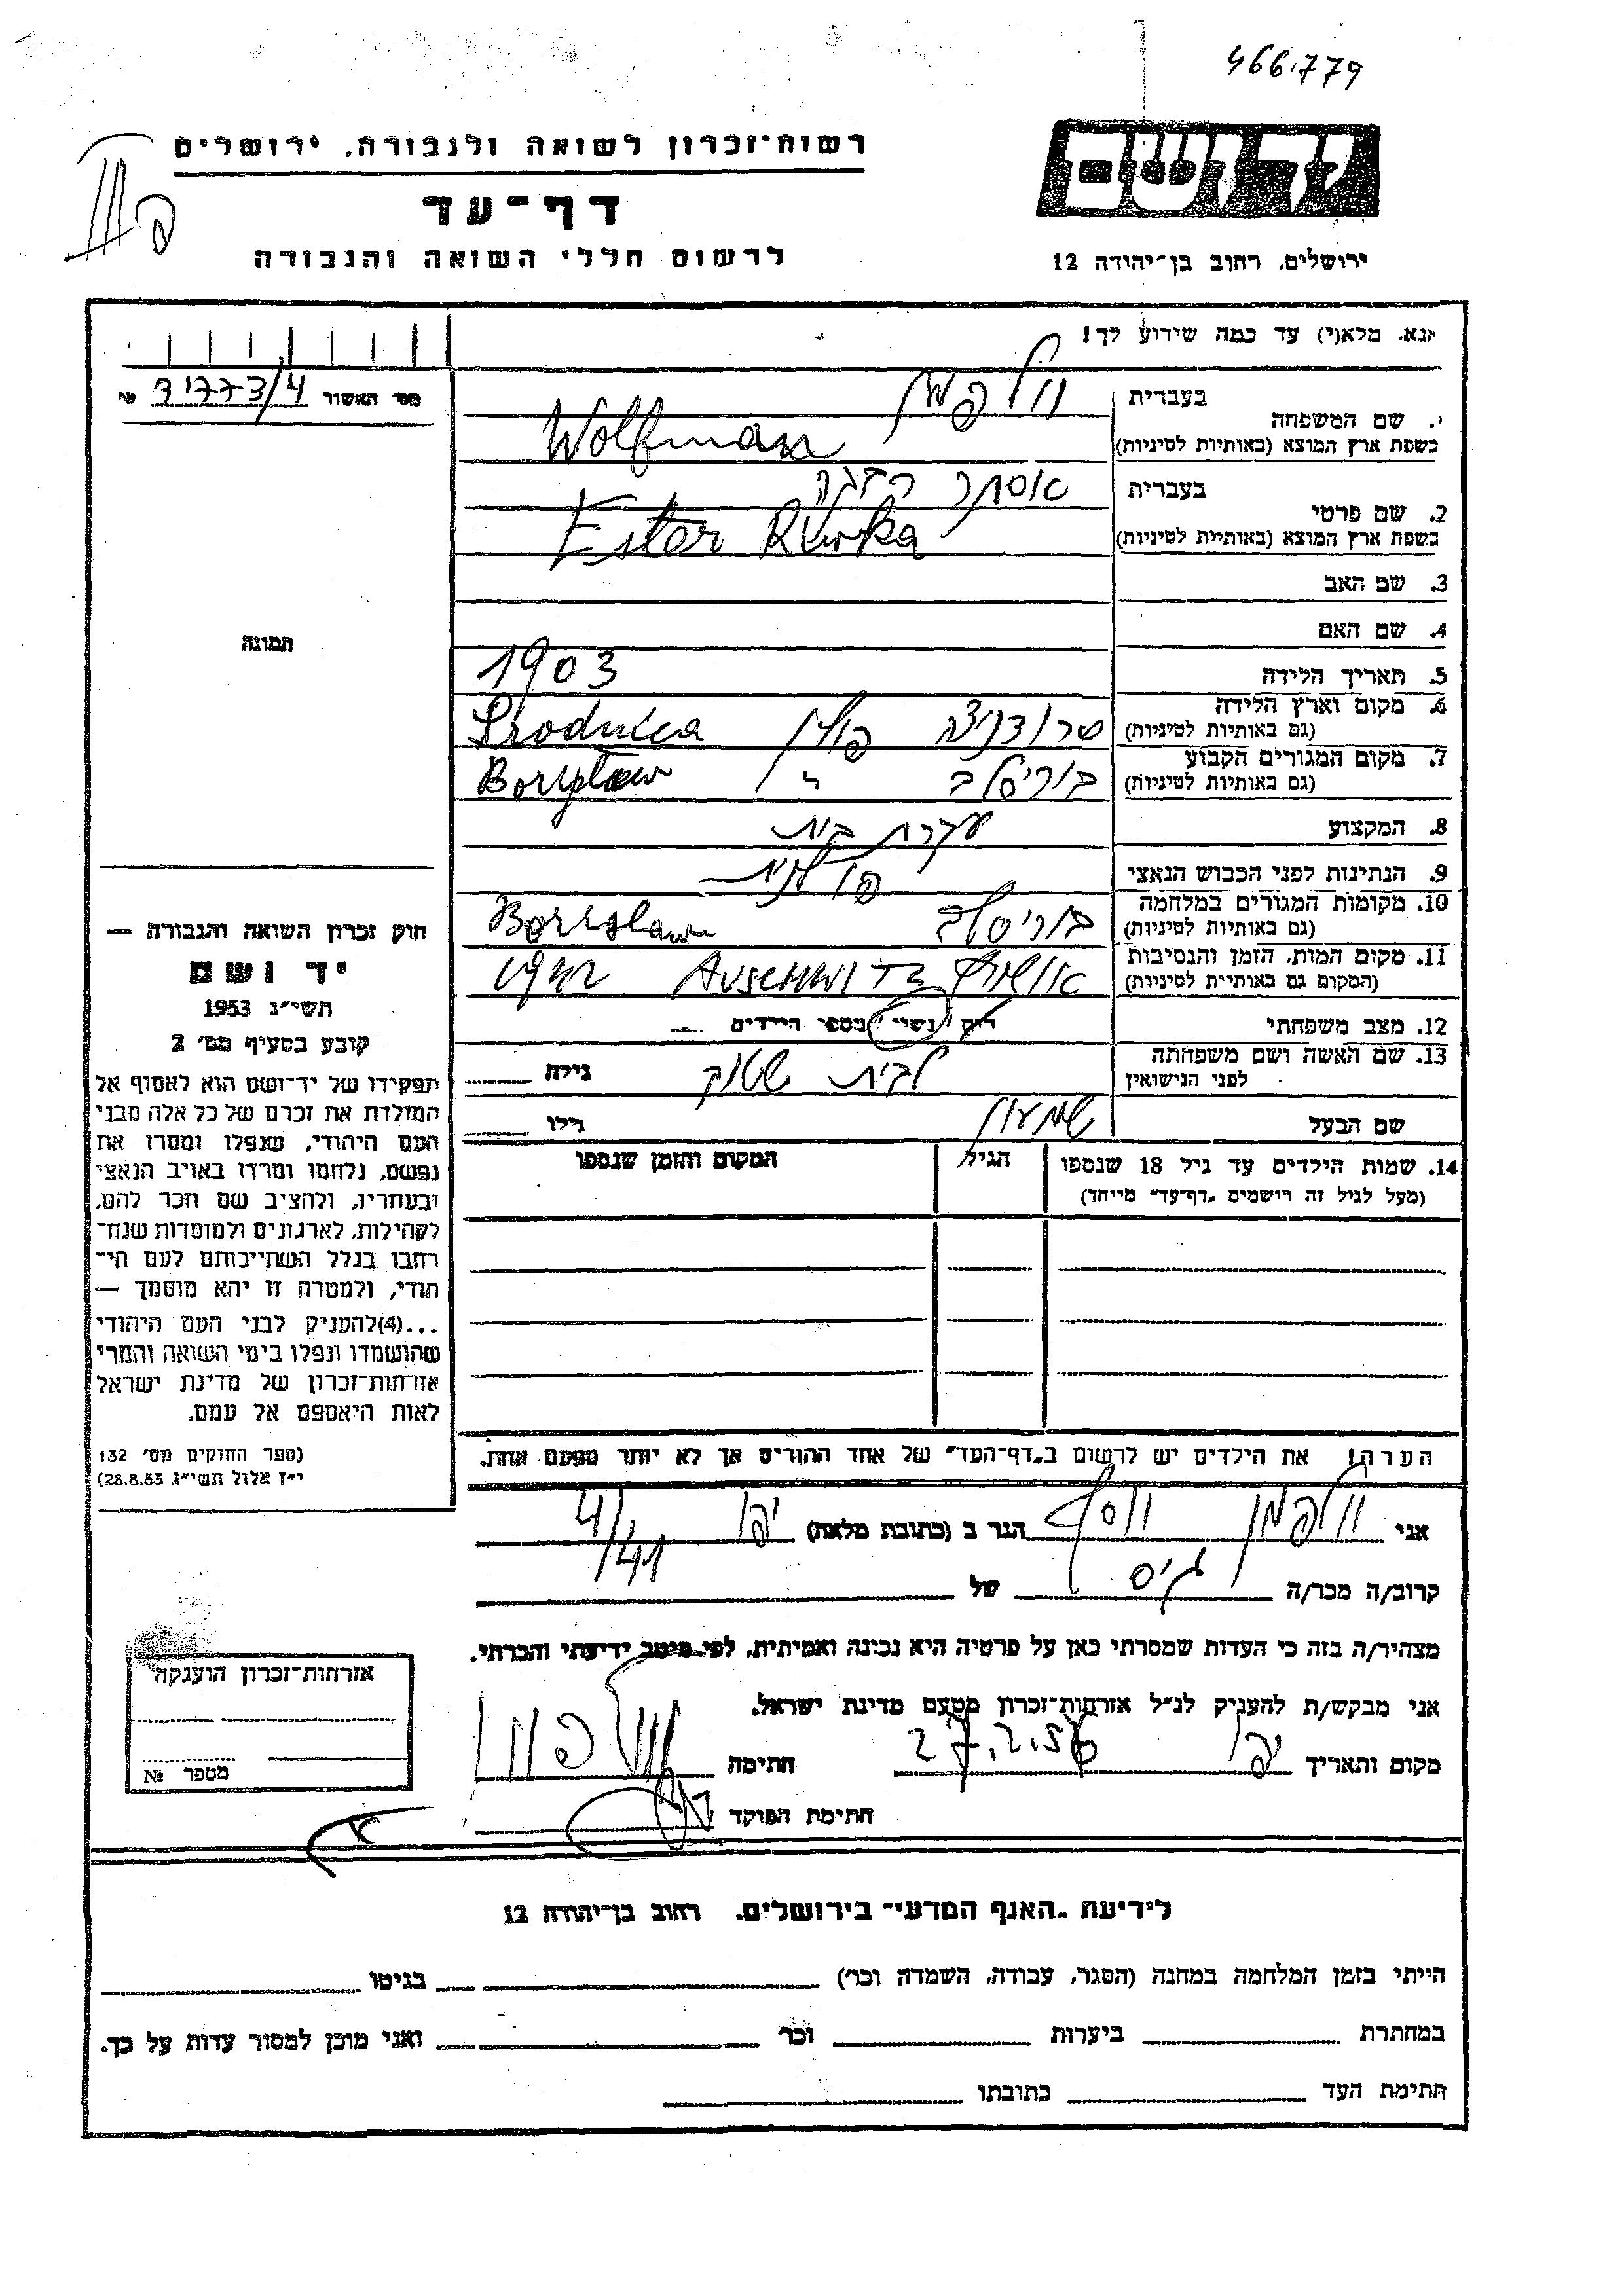 466.779
רשות־זכרון לשואה ולגבורה, ירושלים
דף־עד
לרשום חללי השואה והגבורה
ירושלים, רחוב בן־יהודה 12
נא, מלא(י) עד כמה שידוע לך!
מס׳ האשור № 71773/4
בעברית וולפמן
שם המשפחה
בשפת ארץ המוצא (באותיות לטיניות) Wolfman
בעברית אסתר רבקה
2. שם פרטי
בשפת ארץ המוצא (באותיות לטיניות) Ester Rivka
3. שם האב
4. שם האם
תמונה
5. תאריך הלידה 1903
6. מקום וארץ הלידה סרודניצה פולין Srodnica
(גם באותיות לטיניות)
7. מקום המגורים הקבוע בוריסלב " Boryslaw
(גם באותיות לטיניות)
8. המקצוע עקרת בית
9. הנתינות לפני הכבוש הנאצי פולנית
10. מקומות המגורים במלחמה בוריסלב Borislaw
(גם באותיות לטיניות)
11. מקום המות, הזמן והנסיבות אושוויץ Auschwitz 1942
(המקום גם באותיות לטיניות)
12. מצב משפחתי רוק / נשוי / מספר הילדים
13. שם האשה ושם משפחתה לבית גילה
לפני הנישואין
שם הבעל שמעון גילו
14. שמות הילדים עד גיל 18 שנספו הגיל המקום והזמן שנספו
(מעל לגיל זה רושמים „דף־עד” מיוחד)
חוק זכרון השואה והגבורה —
יד ושם
תשי״ג 1953
קובע בסעיף מס׳ 2
תפקידו של יד־ושם הוא לאסוף אל
המולדת את זכרם של כל אלה מבני
העם היהודי, שנפלו ומסרו את
נפשם, נלחמו ומרדו באויב הנאצי
ובעוזריו, ולהציב שם וזכר להם,
לקהילות, לארגונים ולמוסדות שנח־
רבו בגלל השתייכותם לעם הי־
הודי, ולמטרה זו יהא מוסמך —
...(4) להעניק לבני העם היהודי
שהושמדו ונפלו בימי השואה והמרי
אזרחות־זכרון של מדינת ישראל
לאות היאספם אל עמם.
(ספר החוקים מס׳ 132
י״ז אלול תשי״ג 28.8.53)
הערה! את הילדים יש לרשום ב„דף־העד” של אחד ההורים אך לא יותר מפעם אחת.
אני וולפמן יוסף הגר ב (כתובת מלאה) יפו 4/41
קרוב/ה מכר/ה גיס של
מצהיר/ה בזה כי העדות שמסרתי כאן על פרטיה היא נכונה ואמיתית, לפי מיטב ידיעתי והכרתי.
אני מבקש/ת להעניק לנ״ל אזרחות־זכרון מטעם מדינת ישראל.
מקום ותאריך יפו 27.2.56 חתימה
חתימת הפוקד
אזרחות־זכרון הוענקה
מספר №
לידיעת „האגף המדעי” בירושלים, רחוב בן־יהודה 12
הייתי בזמן המלחמה במחנה (הסגר, עבודה, השמדה וכו׳) בגיטו
במחתרת ביערות וכו׳ ואני מוכן למסור עדות על כך.
חתימת העד כתובתו